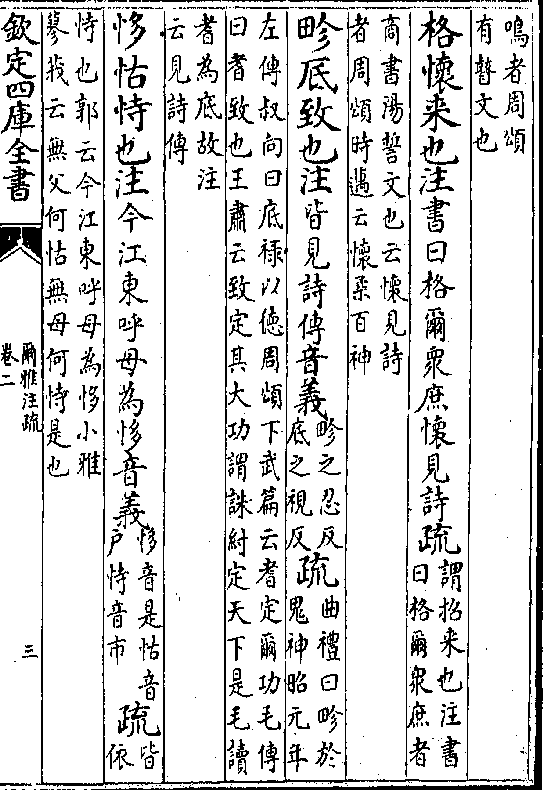 鳴者周頌
有瞽文也
格懷来也注書曰格爾衆庶懷見詩疏謂招来也注書
曰格爾衆庶者
商書湯誓文也云懷見詩
者周頌時邁云懷柔百神
畛底致也注皆見詩傳音義畛之忍反
底之視反疏曲禮曰畛於
鬼神昭元年
左傳叔向曰底祿以德周頌下武篇云耆定爾功毛傳
曰耆致也王肅云致定其大功謂誅紂定天下是毛讀
耆為底故注
云見詩傳
恀怙恃也注今江東呼母為恀音義恀音是怙音
戶恃音市疏皆
依
恃也郭云今江東呼母為恀小雅
蓼莪云無父何怙無母何恃是也
欽定四庫全書
爾雅注疏
卷二
三